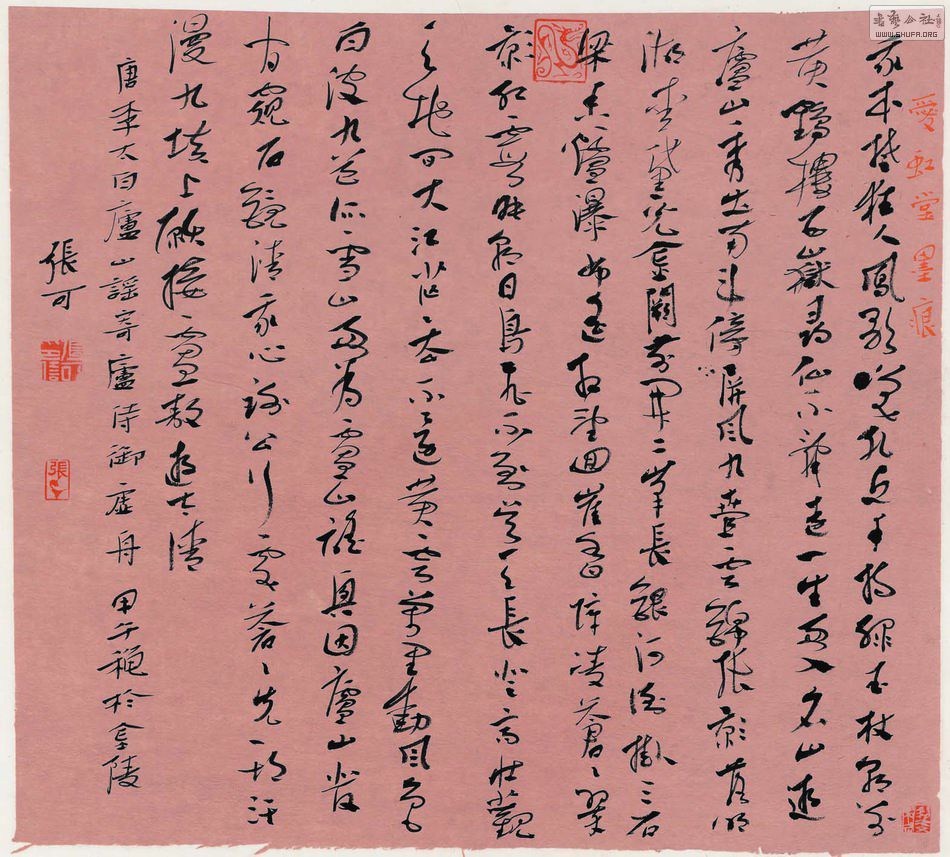 書藝公社
WWW.SHUFA.ORG
愛虹堂墨痕
我本楚狂人鳳歌笑孔丘手持綠玉杖朝別
黄鶴樓五嶽尋仙不辭遠一生好入名山遊
廬山秀出南斗傍屏風九疊雲錦張影落明
湖青黛光金闕前開二峰長銀河倒掛三石
梁香爐瀑布遥相望迴崖沓障凌蒼〻翠
影紅霞映朝日鳥飛不到吴天長登高壯觀
天地間大江茫〻去不還黄雲萬里動風色
白波九道流雪山好為廬山謠興因廬山發
窺石鏡清我心謝公行處蒼〻先期汗
漫九垓上願接盧敖遊太清
唐李太白廬山謠寄廬侍御虚舟 甲午穐於金陵
張可